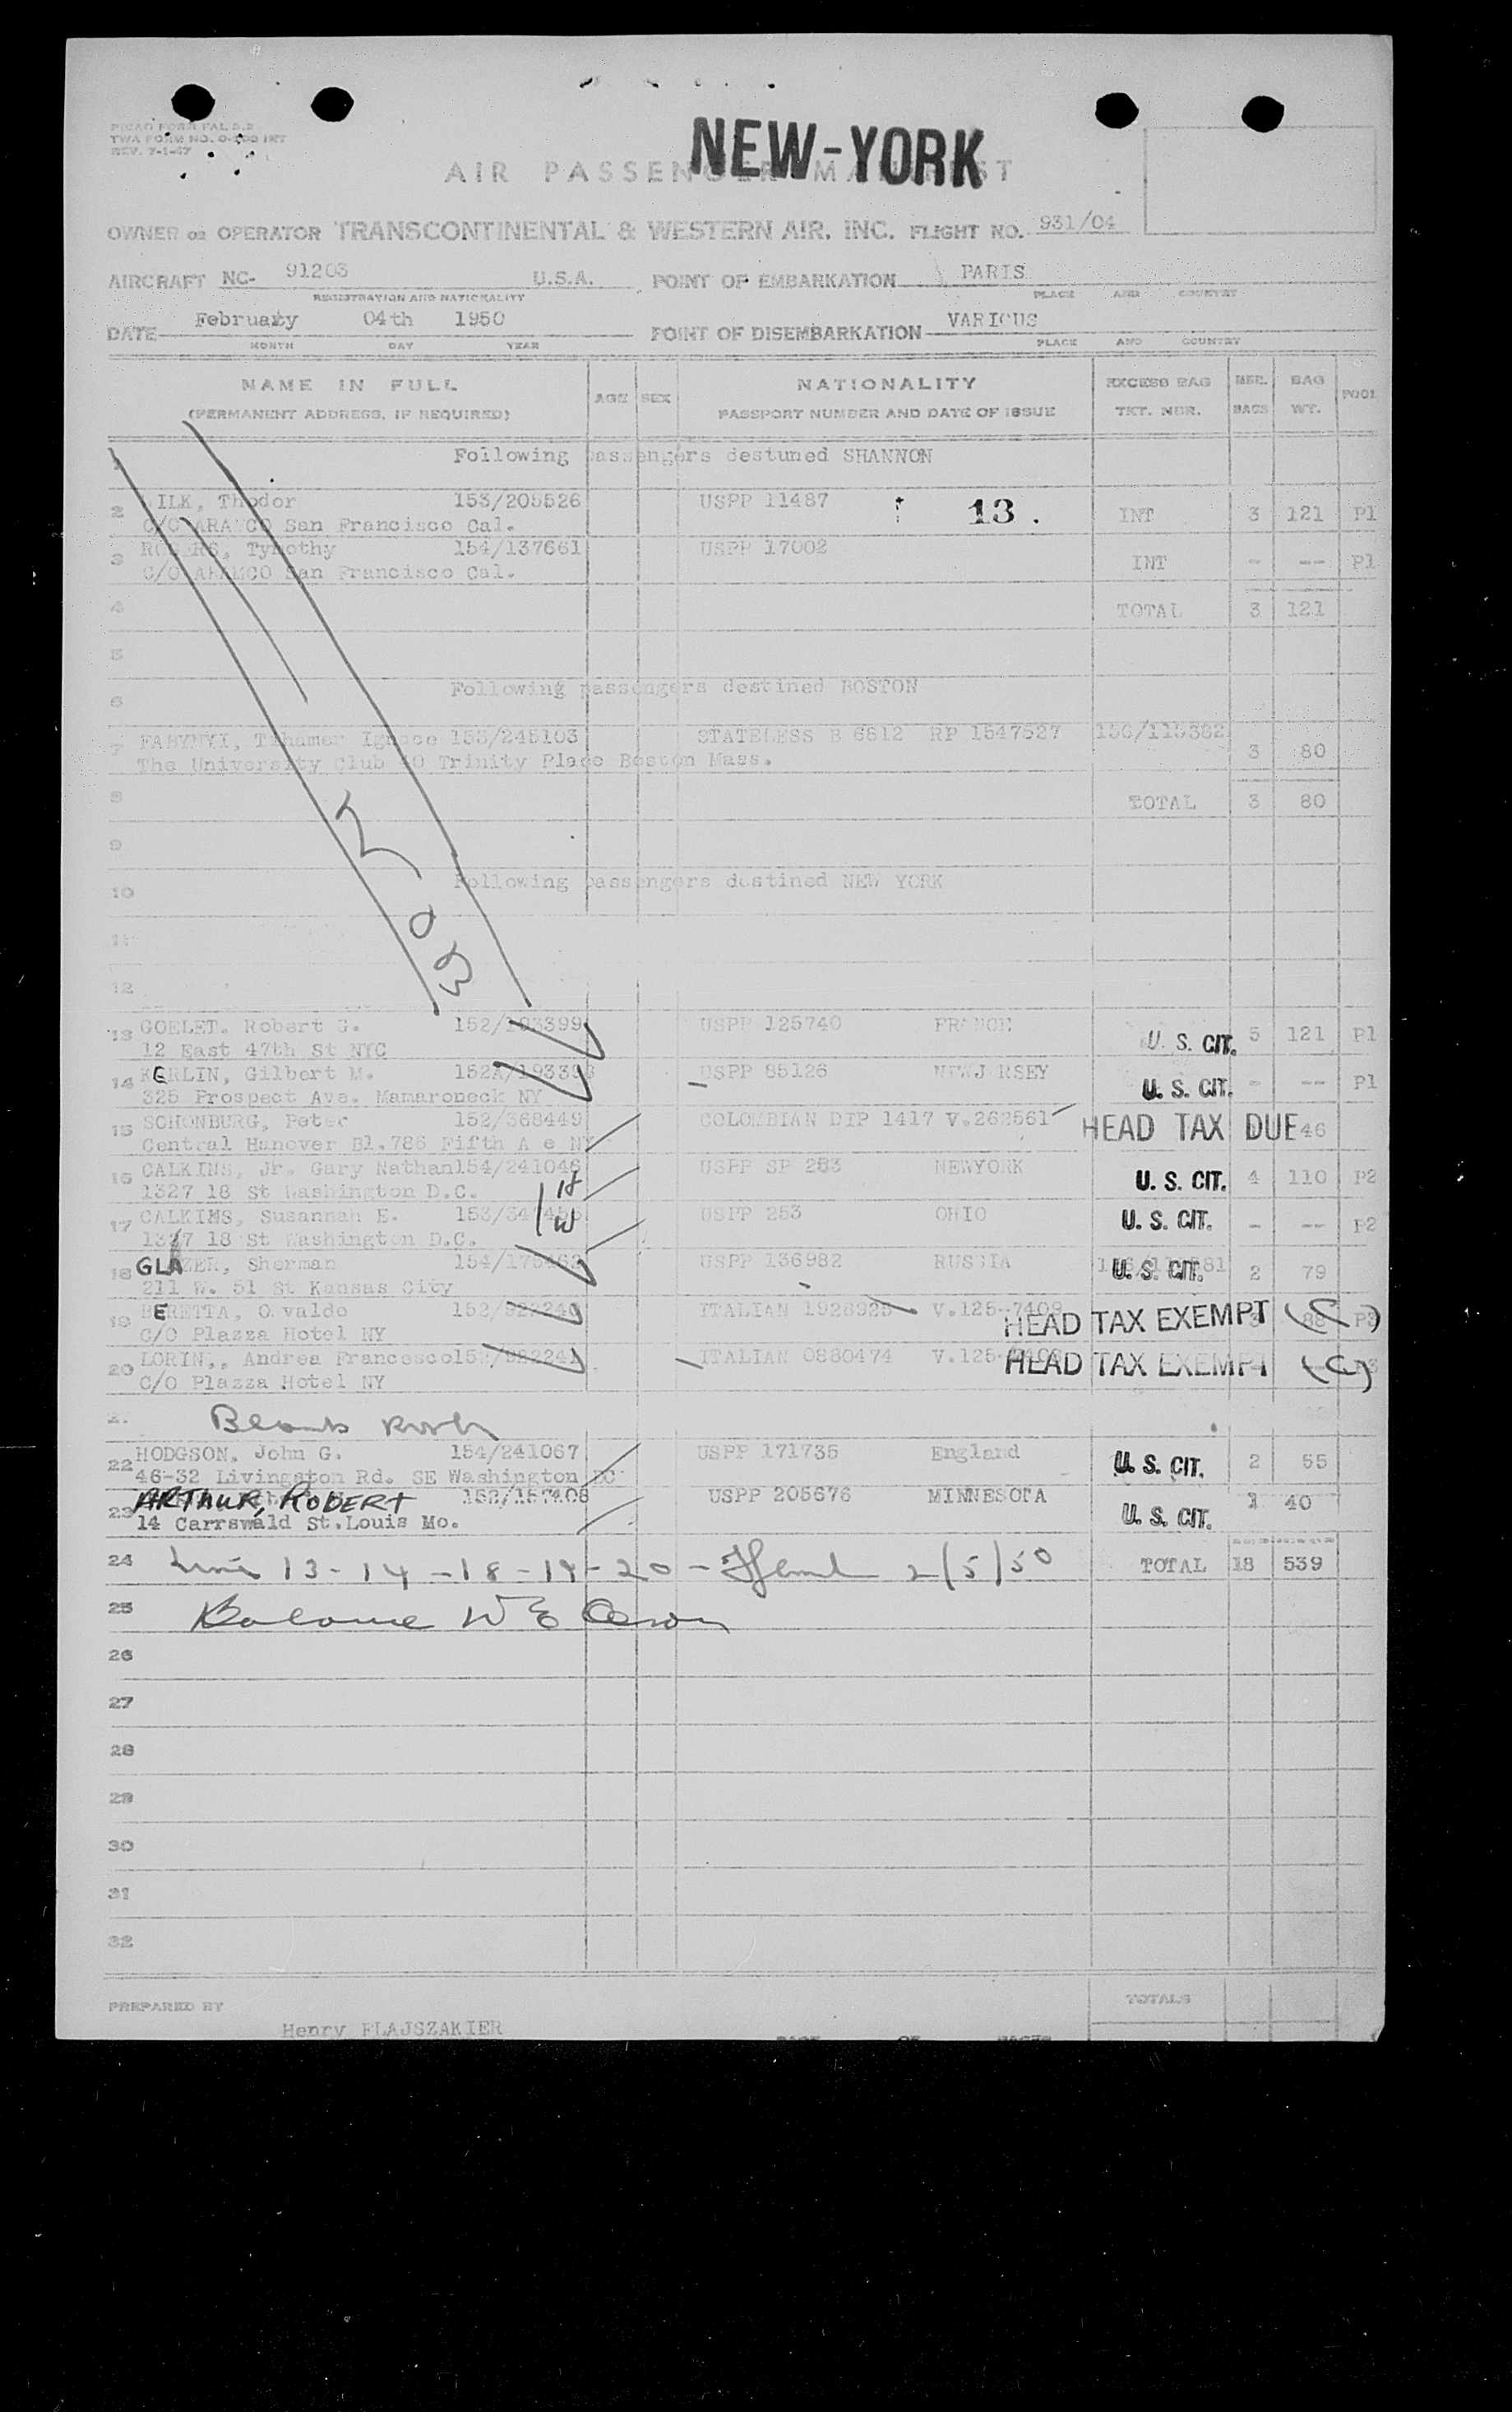 NEW-YORK
PICAO FORM FAL 5.2
TWA FORM NO. O-200 INT
REV. 7-1-47
AIR PASSENGER MANIFEST
OWNER OR OPERATOR TRANSCONTINENTAL & WESTERN AIR, INC. FLIGHT NO. 931/04
AIRCRAFT NC- 91203 U.S.A. POINT OF EMBARKATION PARIS
REGISTRATION AND NATIONALITY PLACE AND COUNTRY
DATE February 04th 1950 POINT OF DISEMBARKATION VARIOUS
MONTH DAY YEAR PLACE AND COUNTRY
NAME IN FULL AGE SEX NATIONALITY EXCESS BAG NBR. BAG POOL
(PERMANENT ADDRESS, IF REQUIRED) PASSPORT NUMBER AND DATE OF ISSUE TKT. NBR. BAGS WT.
1 Following passengers destuned SHANNON
2 ILK, Thodor 153/205526 USPP 11487 13. INT 3 121 P1
C/O ARAMCO San Francisco Cal.
3 ROGERS, Tymothy 154/137661 USPP 17002 INT - -- P1
C/O ARAMCO San Francisco Cal.
4 TOTAL 3 121
5
6 Following passengers destined BOSTON
7 FABYNYI, Tihamer Ignace 153/245103 STATELESS B 6812 RP 1547527 156/115382
The University Club 40 Trinity Place Boston Mass. 3 80
8 TOTAL 3 80
9
10 Following passengers destined NEW YORK
11
12
13 GOELET. Robert G. 152/193399 USPP 125740 FRANCE U. S. CIT. 5 121 P1
12 East 47th St NYC
14 KERLIN, Gilbert M. 152A/193398 USPP 85126 NEWJERSEY U. S. CIT. - -- P1
325 Prospect Ave. Mamaroneck NY
15 SCHONBURG, Peter 152/368449 COLOMBIAN DIP 1417 V.262561 HEAD TAX DUE 46
Central Hanover Bl.786 Fifth A e NY
16 CALKINS, Jr. Gary Nathan 154/241046 USPP SP 283 NEWYORK U. S. CIT. 4 110 P2
1327 18 St Washington D.C. H
17 CALKINS, Susannah E. USPP 253 OHIO U. S. CIT. - -- P2
1327 18 St Washington D.C. W
18 GLAZER, Sherman 154/175462 USPP 136982 RUSSIA U. S. CIT. 2 79
211 W. 51 St Kansas City
19 BERETTA, O valdo ITALIAN 1928925 V.125-7409 HEAD TAX EXEMPT (C) 88 P3
C/O Plazza Hotel NY
20 LORIN,, Andrea Francesco 152/922241 ITALIAN 0880474 V.125- HEAD TAX EXEMPT (C)
C/O Plazza Hotel NY
21
22 HODGSON, John G. 154/241067 USPP 171735 England U. S. CIT. 2 55
46-32 Livingston Rd. SE Washington DC
23 ARTHUR, ROBERT 152/157408 USPP 205676 MINNESOTA U. S. CIT. 1 40
14 Carrswald St.Louis Mo.
24 Lines 13-14-18-19-20- 2/5/50 TOTAL 18 539
25 Balance
26
27
28
29
30
31
32
PREPARED BY TOTALS
Henry FLAJSZAKIER
PAGE OF PAGES